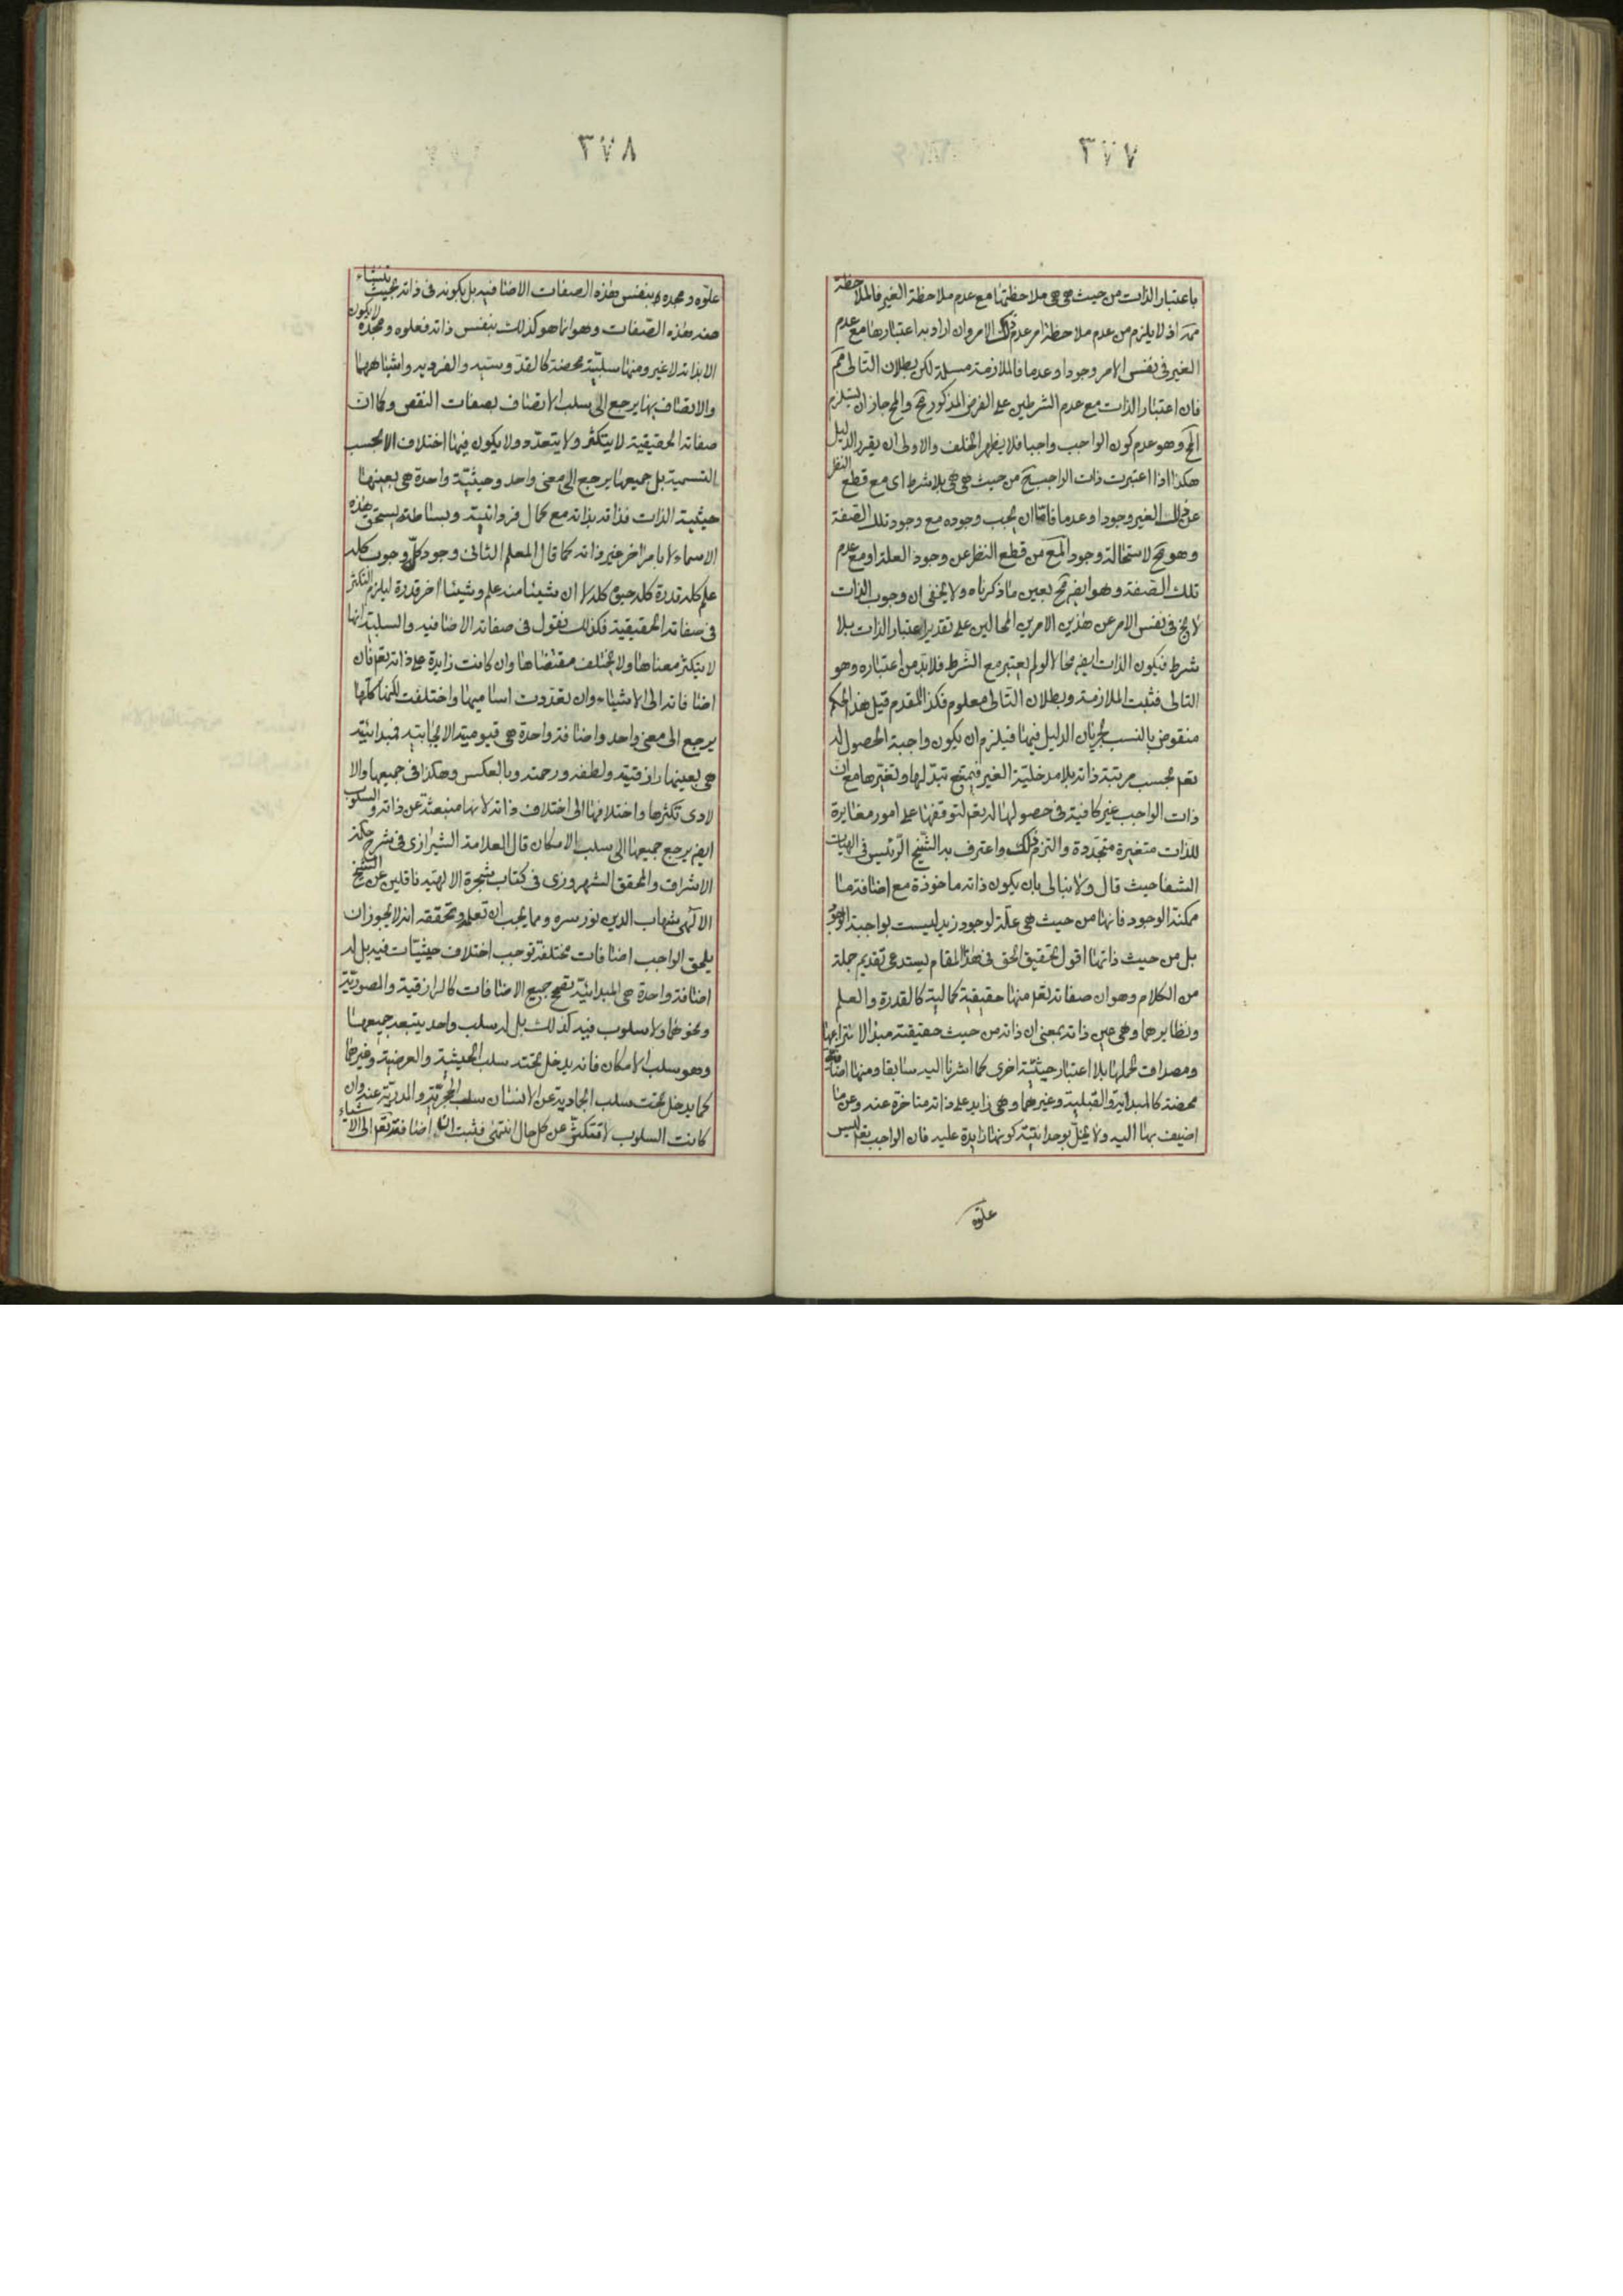 ٣٧٧
باعتبار الذات من حيث هي هي ملاحظتها مع عدم ملاحظة الغير فالملاحظة
ممه اذ لا يلزم من عدم ملاحظة امر عدم ذلك الامر وان اراد به اعتبارها مع عدم
الغير في نفس الامر وجودا وعدما فالملازمة مسلمة لكن بطلان التالي مم
فان اعتبار الذات مع عدم الشرطين على الفرض المذكور مح والمح جاز ان يستلزم
المح وهو عدم كون الواجب واجبا فلا يظهر الخلف والاولى ان يقرر الدليل
هكذا اذا اعتبرت ذات الواجب تع من حيث هي هي بلا شرط اى مع قطع النظر
عن ذلك الغير وجودا وعدما فاما ان يجب وجوده مع وجود تلك الصفة
وهو مح لاستحالة وجود المع من قطع النظر عن وجود العلة او مع عدم
تلك الصفة وهو ايض مح بعين ما ذكرناه ولا يخفى ان وجوب الذات
لا يخ في نفس الامر عن هذين الامرين المحالين على تقدير اعتبار الذات بلا
شرط فيكون الذات ايض محالا لو لم يعتبر مع الشرط فلابد من اعتباره وهو
التالى فثبت الملازمة وبطلان التالى معلوم فكذا المقدم قيل هذا الحكم
منقوض بالنسب لجريان الدليل فيها فيلزم ان يكون واجبة الحصول له
تعم بحسب مرتبة ذاته بلا مدخلية الغير فيمتنع تبدلها وتغيرها مع ان
ذات الواجب غير كافية في حصولها له تعم لتوقفها على امور مغايرة
للذات متغيرة متجددة والتزم ذلك واعترف به الشيخ الرئيس فى الهيات
الشفا حيث قال ولا نبالى بان يكون ذاته ماخوذة مع اضافة ما
ممكنة الوجود فانها من حيث هى علة لوجود زيد ليست بواجبة الوجود
بل من حيث ذاتها اقول تحقيق الحق فى هذا المقام يستدعى تقديم جملة
من الكلام وهو ان صفاته تعم منها حقيقية كمالية كالقدرة والعلم
ونظايرهما وهى عين ذاته بمعنى ان ذاته من حيث حقيقته مبدا لانتزاعها
ومصداق لحملها بلا اعتبار حيثية اخرى كما اشرنا اليه سابقا ومنها اضافية
محضة كالمبدائية والقبلية وغيرهما وهى زايد على ذاته متاخرة عنه وعن ما
اضيف بها اليه ولا يخل بوحدانيته كونها زايدة عليه فان الواجب تعم ليس
علوه
٣٧٨
علوه ومجده بنفس هذه الصفات الاضافيه بل بكونه فى ذاته بحيث تنشاء
منه هذه الصفات وهو انما هو كذلك بنفس ذاته فعلوه ومجده لا يكون
الا بذاته لا غير ومنها سلبية محضة كالقدوسيه والفرديه واشباههما
والاتصاف بها يرجع الى سلب الاتصاف بصفات النقص وكما ان
صفاته الحقيقية لا يتكثر ولا يتعدد ولا يكون فيها اختلاف الا بحسب
التسمية بل جميعها يرجع الى معنى واحد وحيثية واحدة هى بعينها
حيثية الذات فذاته بذاته مع كمال فردانيته وبساطته يستحق هذه
الاسماء لا بامر اخر غير ذاته كما قال المعلم الثانى وجود كله وجوب كله
علم كله قدرة كله حيوة كله لا ان شيئا منه علم وشيئا اخر قدرة ليلزم التكثر
فى صفاته الحقيقية فكذلك نقول فى صفاته الاضافيه والسلبية انها
لا يتكثر معناها ولا يختلف مقتضاها وان كانت زايدة على ذاته تعم فان
اضافاته الى الاشياء وان تعددت اساميها واختلفت لكنها كلها
يرجع الى معنى واحد واضافة واحدة هى قيوميته الايجابيه فمبدائيته
هى بعينها رازقيته ولطفه ورحمته وبالعكس وهكذا فى جميعها والا
لادى تكثرها واختلافها الى اختلاف ذاته لانها منبعثة عن ذاته والسلوب
ايض يرجع جميعها الى سلب الامكان قال العلامة الشيرازى فى شرح حكمة
الاشراق والمحقق الشهرزورى فى كتاب شجرة الالهيه ناقلين عن الشيخ
الالهى شهاب الدين نور سره ومما يجب ان تعلمه وتحققه انه لا يجوز ان
يلحق الواجب اضافات مختلفة توجب اختلاف حيثيات فيه بل له
اضافة واحدة هى المبدائية تصحح جميع الاضافات كالرازقية والمصورية
ونحوهما ولا سلوب فيه كذلك بل له سلب واحد يتبعه جميعها
وهو سلب الامكان فانه يدخل تحته سلب الجسمية والعرضية وغيرهما
كما يدخل تحت سلب الجمادية عن الانسان سلب الحجرية والمدرية عنه وان
كانت السلوب لا تتكثر عن كل حال انتهى فثبت ان اضافته تعم الى الاشياء